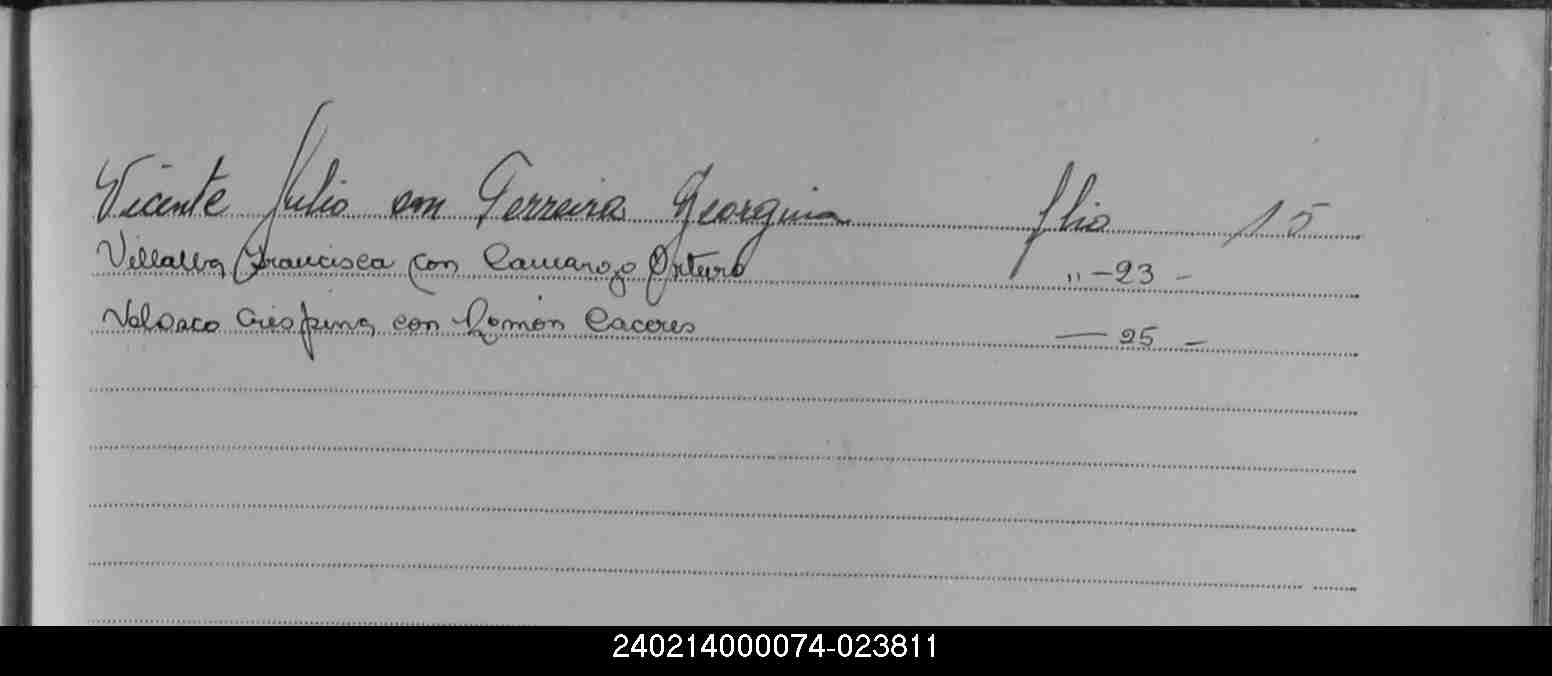 Vicente Julio con Ferreira Georgina flio 15
Villalba Francisca con Camargo Arturo " - 23 -
Velasco Crespina con Román Caceres — 25 -
240214000074-023811